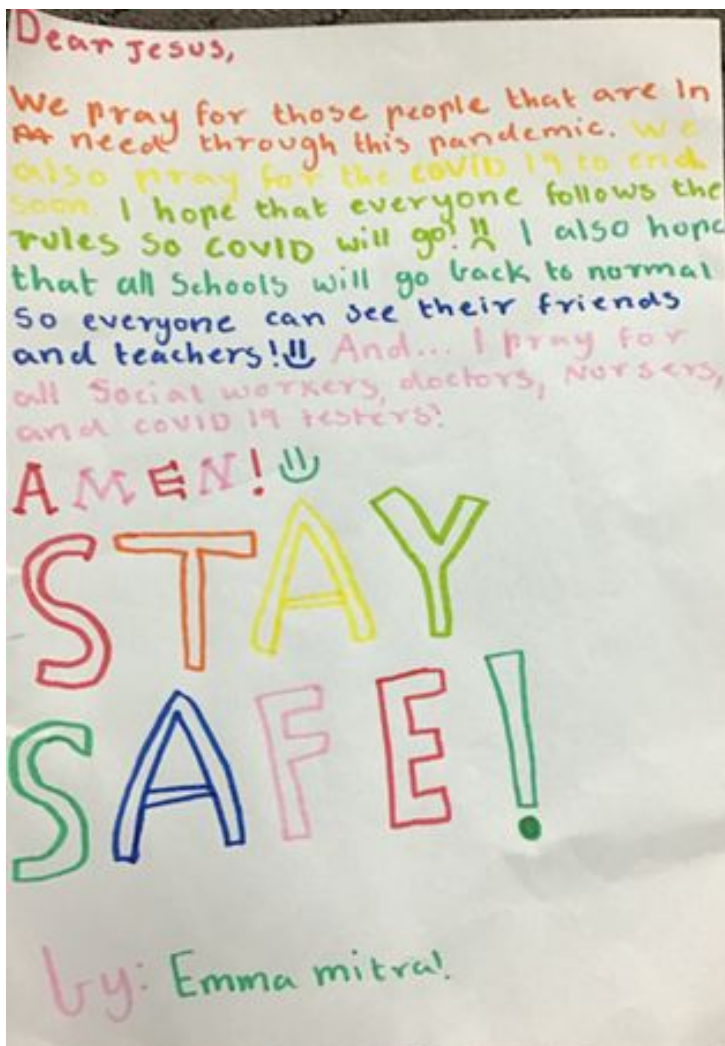 Dear Jesus,
We pray for those people that are in
need through this pandemic. We
also pray for the covid 19 to end
soon. I hope that everyone follows the
rules so covid will go! I also hope
that all Schools will go back to normal
so everyone can see their friends
and teachers! And... I pray for
all Social workers, doctors, Nursers,
and covid 19 testers!
AMEN!
STAY
SAFE!
by: Emma mitra!